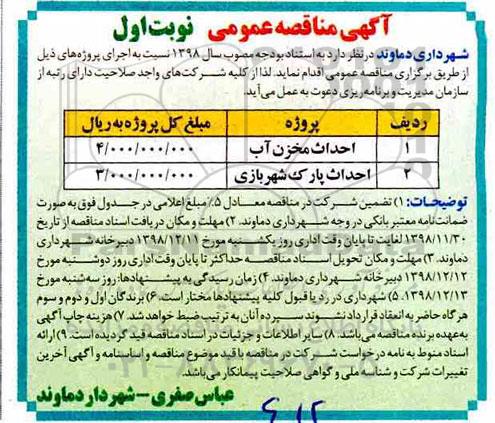 آگهی مناقصه عمومی نوبت اول
شهرداری دماوند در نظر دارد به استناد بودجه مصوب سال ۱۳۹۸ نسبت به اجرای پروژه‌های ذیل
از طریق برگزاری مناقصه عمومی اقدام نماید. لذا از کلیه شرکت‌های واجد صلاحیت دارای رتبه از
سازمان مدیریت و برنامه‌ریزی دعوت به عمل می‌آید.
ردیف پروژه مبلغ کل پروژه به ریال
۱ احداث مخزن آب ۴/۰۰۰/۰۰۰/۰۰۰
۲ احداث پارک شهربازی ۳/۰۰۰/۰۰۰/۰۰۰
توضیحات: ۱) تضمین شرکت در مناقصه معادل ۵٪ مبلغ اعلامی در جدول فوق به صورت
ضمانت‌نامه معتبر بانکی در وجه شهرداری دماوند. ۲) مهلت و مکان دریافت اسناد مناقصه از تاریخ
۱۳۹۸/۱۱/۳۰ لغایت تا پایان وقت اداری روز یکشنبه مورخ ۱۳۹۸/۱۲/۱۱ دبیرخانه شهرداری
دماوند. ۳) مهلت و مکان تحویل اسناد مناقصه حداکثر تا پایان وقت اداری روز دوشنبه مورخ
۱۳۹۸/۱۲/۱۲ دبیرخانه شهرداری دماوند. ۴) زمان رسیدگی به پیشنهادها: روز سه‌شنبه مورخ
۱۳۹۸/۱۲/۱۳. ۵) شهرداری در رد یا قبول کلیه پیشنهادها مختار است. ۶) برندگان اول و دوم و سوم
هرگاه حاضر به انعقاد قرارداد نشوند سپرده آنان به ترتیب ضبط خواهد شد. ۷) هزینه چاپ آگهی
به عهده برنده مناقصه می‌باشد. ۸) سایر اطلاعات و جزئیات در اسناد مناقصه قید گردیده است. ۹) ارائه
اسناد منوط به نامه درخواست شرکت در مناقصه با قید موضوع مناقصه و اساسنامه و آگهی آخرین
تغییرات شرکت و شناسه ملی و گواهی صلاحیت پیمانکار می‌باشد.
عباس صفری - شهردار دماوند